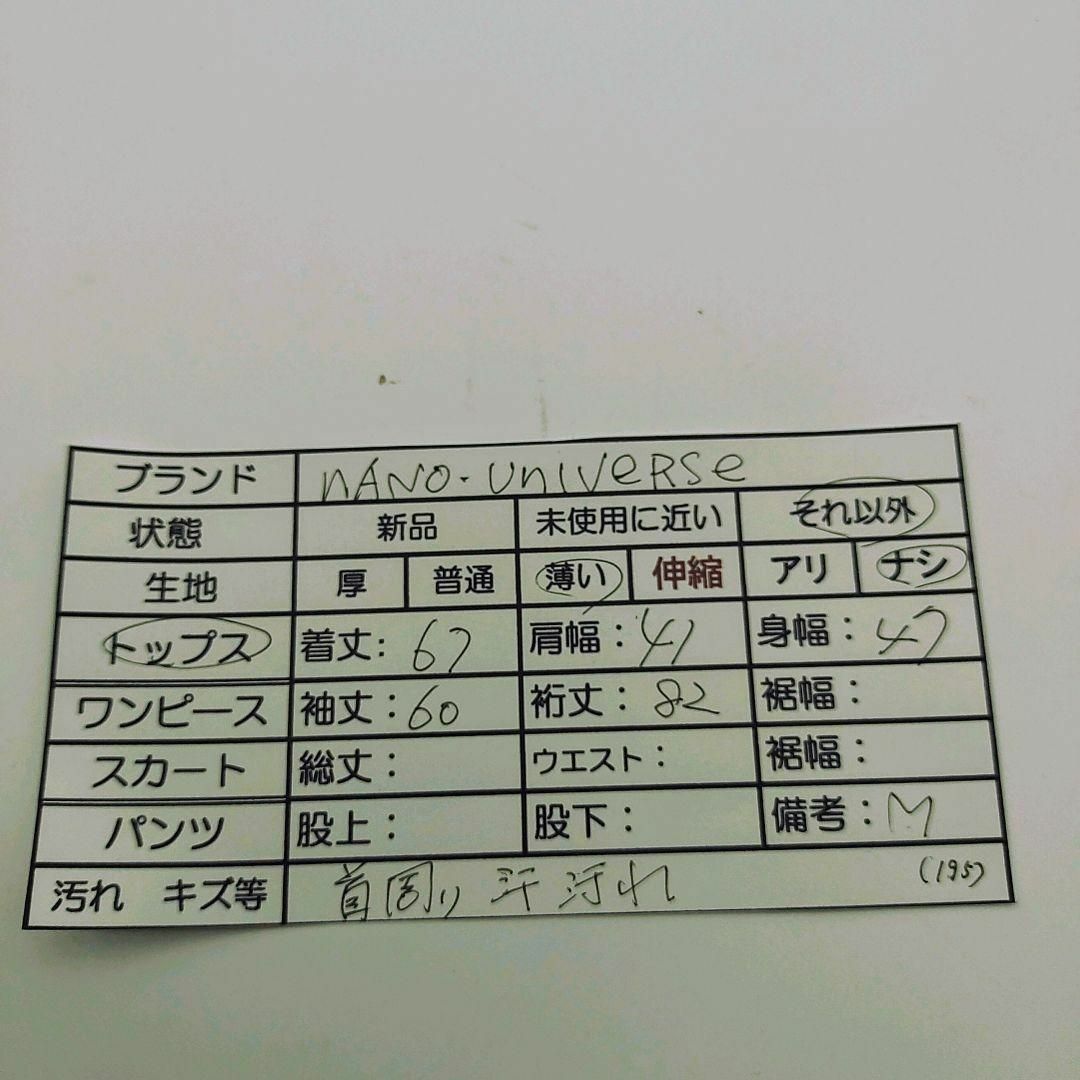 ブランド nANO・UnIVERSe
状態 新品 未使用に近い それ以外
生地 厚 普通 薄い 伸縮 アリ ナシ
トップス 着丈: 67 肩幅: 41 身幅: 47
ワンピース 袖丈: 60 裄丈: 82 裾幅:
スカート 総丈: ウエスト: 裾幅:
パンツ 股上: 股下: 備考: M
汚れ キズ等 首周り 汗 汚れ (195)